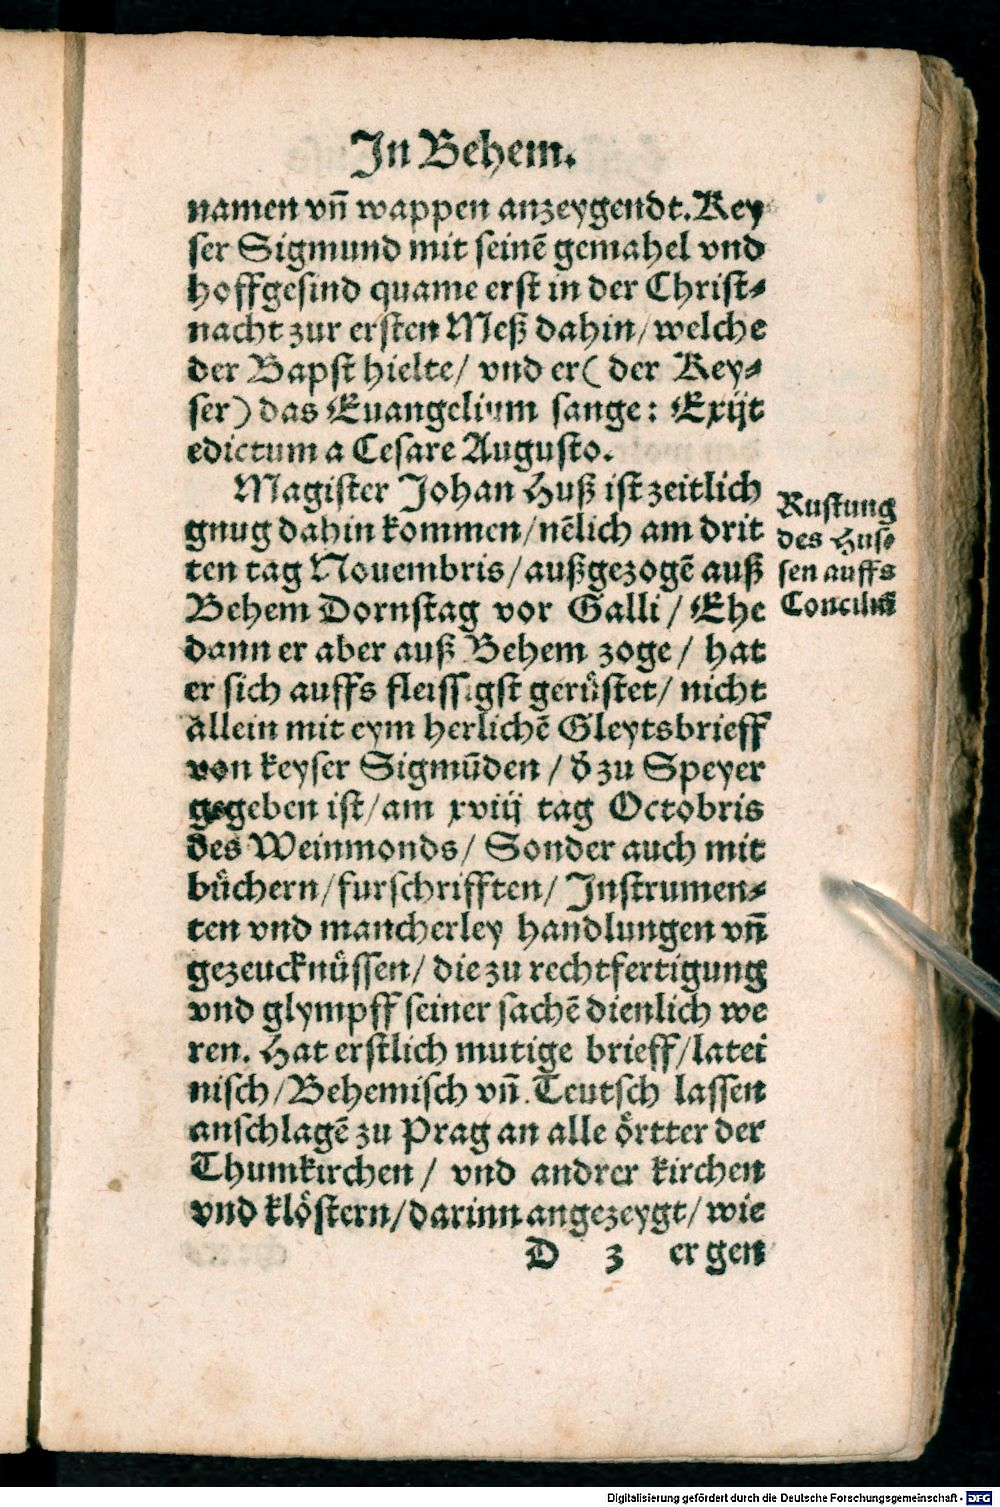 In Behem.
namen vñ wappen anzeygendt. Key
ser Sigmund mit seinē gemahel vnd
hoffgesind quame erst in der Christ⸗
nacht zur ersten Meß dahin/ welche
der Bapst hielte/ vnd er( der Key⸗
ser) das Euangelium sange: Exijt
edictum a Cesare Augusto.
Magister Johan Huß ist zeitlich
gnug dahin kommen/ nēlich am drit
ten tag Nouembris/ außgezogē auß
Behem Dornstag vor Galli/ Ehe
dann er aber auß Behem zoge/ hat
er sich auffs fleissigst gerüstet/ nicht
allein mit eym herlichē Gleytsbrieff
von keyser Sigmūden/ d̓ zu Speyer
gegeben ist/ am xviij tag Octobris
des Weinmonds/ Sonder auch mit
büchern/ furschrifften/ Instrumen⸗
ten vnd mancherley handlungen vñ
gezeucknüssen/ die zu rechtfertigung
vnd glympff seiner sachē dienlich we
ren. Hat erstlich mutige brieff/ latei
nisch/ Behemisch vñ Teutsch lassen
anschlagē zu Prag an alle örtter der
Thumkirchen/ vnd andrer kirchen
vnd klöstern/ darinn angezeygt/ wie
D 3 er gen
Rustung
des Hus⸗
sen auffs
Conciliū
Digitalisierung gefördert durch die Deutsche Forschungsgemeinschaft - DFG